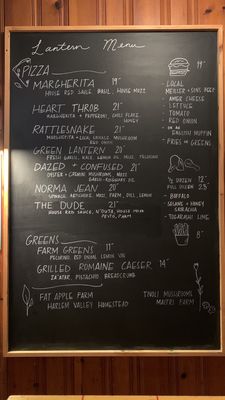 Lantern Menu
PIZZA
MARGHERITA 19"
HOUSE RED SAUCE, BASIL, HOUSE MOZZ
HEART THROB 21"
MARGHERITA + PEPPERONI, CHILI FLAKE
HONEY
RATTLESNAKE 21"
MARGHERITA + LOCAL CHORIZO, MUSHROOM
RED ONION
GREEN LANTERN 20"
FRESH GARLIC, KALE, LEMON OIL, MOZZ, PECORINO
DAZED + CONFUSED 21"
OYSTER + CREMINI MUSHROOMS, MOZZ
GARLIC-ROSEMARY OIL
NORMA JEAN 20"
SPINACH, ARTICHOKE, MOZZ, PARM, DILL, LEMON
THE DUDE 21"
HOUSE RED SAUCE, N'DUJA, HOUSE MOZZ
PESTO, PARM
GREENS
FARM GREENS 11"
PECORINO, RED ONION, LEMON VIN
GRILLED ROMAINE CAESER 14"
ZA'ATAR, PISTACHIO BREADCRUMB
FAT APPLE FARM
HARLEM VALLEY HOMESTEAD
19"
- LOCAL
MEILLER + SONS BEEF
- AMER CHEESE
- LETTUCE
- TOMATO
- RED ONION
- ON AN
ENGLISH MUFFIN
- FRIES OR GREENS
½ DOZEN 12"
FULL DOZEN 23"
- BUFFALO
- SESAME + HONEY
SRIRACHA
- TOGARASHI LIME
8"
TIVOLI MUSHROOMS
MAITRI FARM